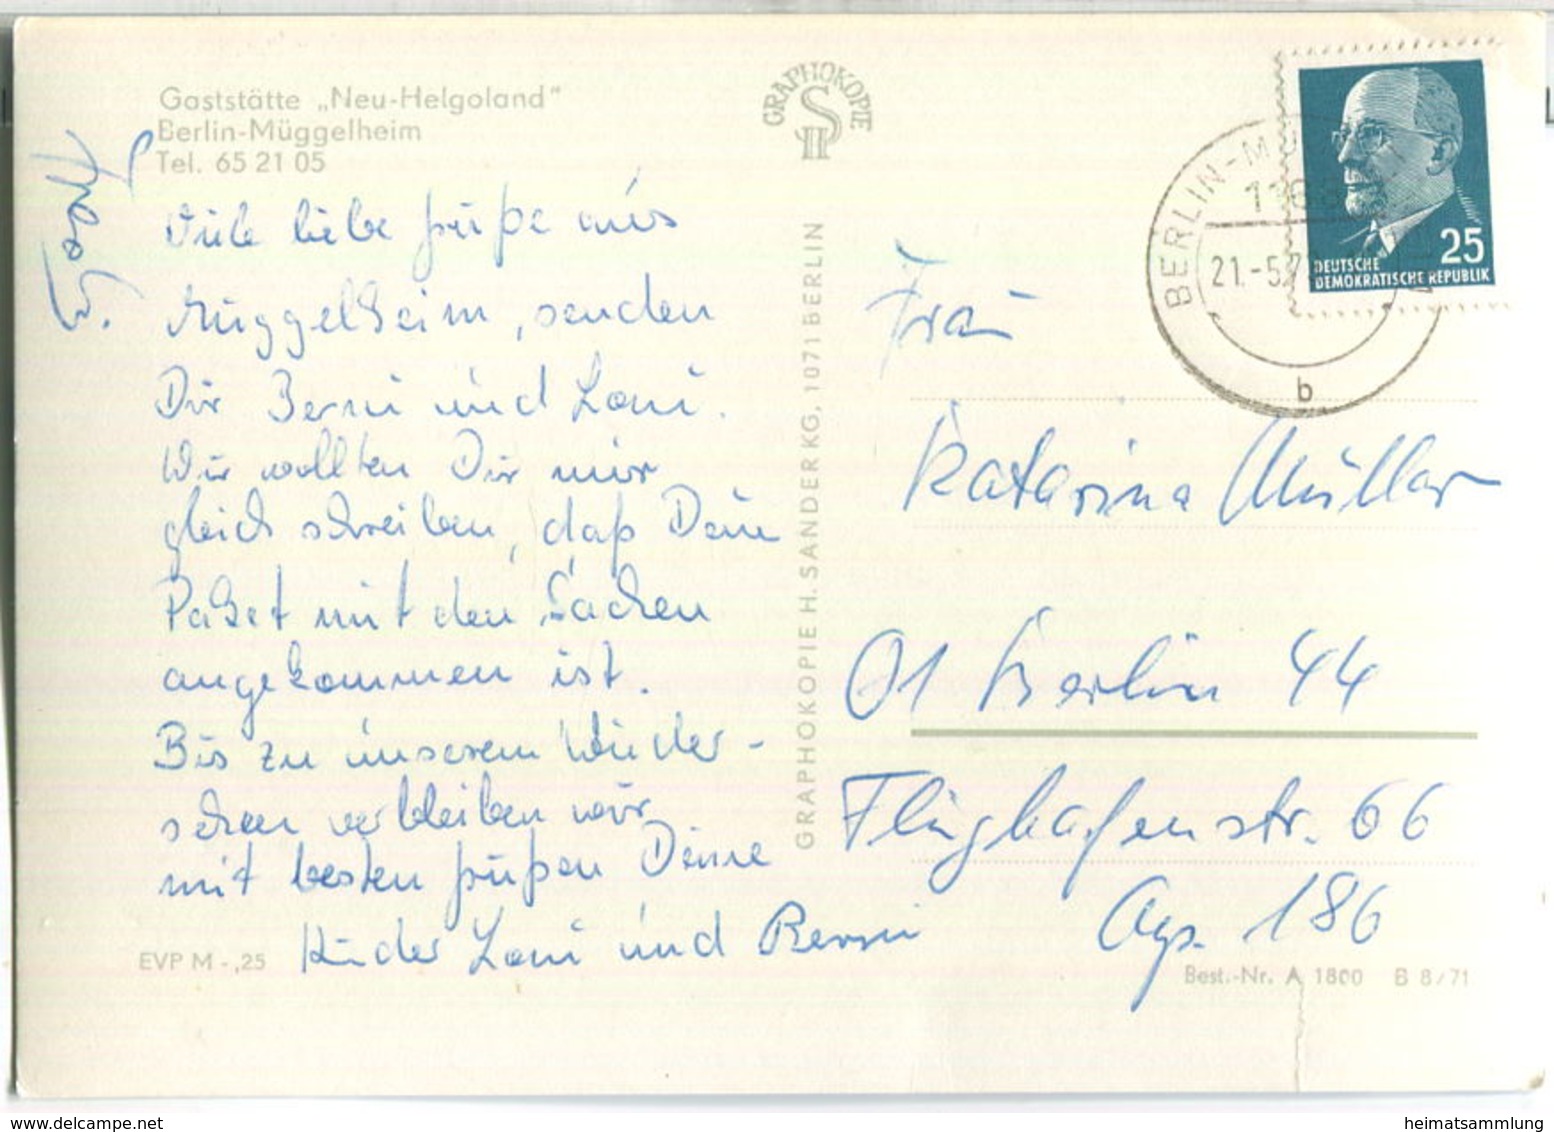 Gaststätte „Neu-Helgoland"
Berlin-Müggelheim
Tel. 65 21 05
GRAPHOKOPIE
H S
Viele liebe Grüße aus
Müggelheim, senden
Dir Berni und Loni.
Wir wollten Dir nur
gleich schreiben, daß Dein
Paket mit den Sachen
angekommen ist.
Bis zu unserem Wieder-
sehen verbleiben wir
mit besten Grüßen Deine
Kinder Loni und Berni
EVP M -,25
GRAPHOKOPIE H. SANDER KG, 1071 BERLIN
BERLIN-MÜ
21.-5.7
b
25
DEUTSCHE
DEMOKRATISCHE REPUBLIK
Frau
Katarina Müller
01 Berlin 44
Flughafenstr. 66
186
Best.-Nr. A 1800 B 8/71
heimatsammlung
delcampe.net